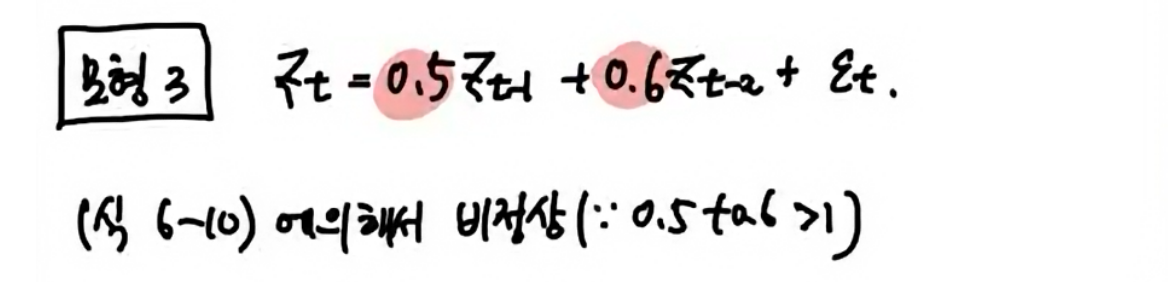 모형 3 Zt = 0.5Zt-1 + 0.6Zt-2 + εt.
(식 6-10)에 의해서 비정상(∵ 0.5+0.6 >1)